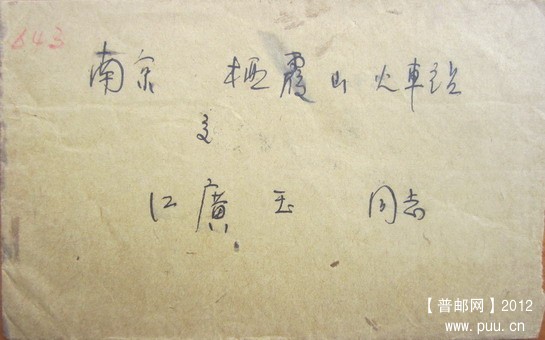 643
南京 栖霞山火車站
交
江廣玉 同志
【普邮网】2012
www.puu.cn